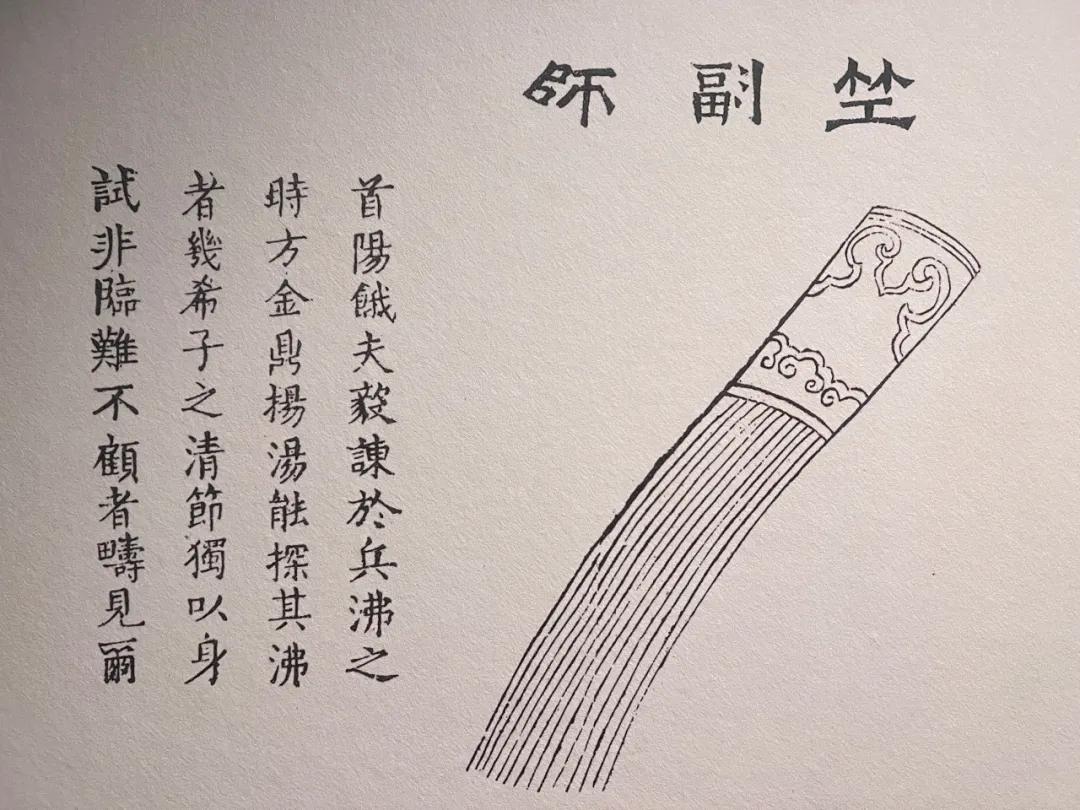 竺副師
首陽餓夫毅諫於兵沸之
時方金鼎揚湯能探其沸
者幾希子之清節獨以身
試非臨難不顧者疇見爾